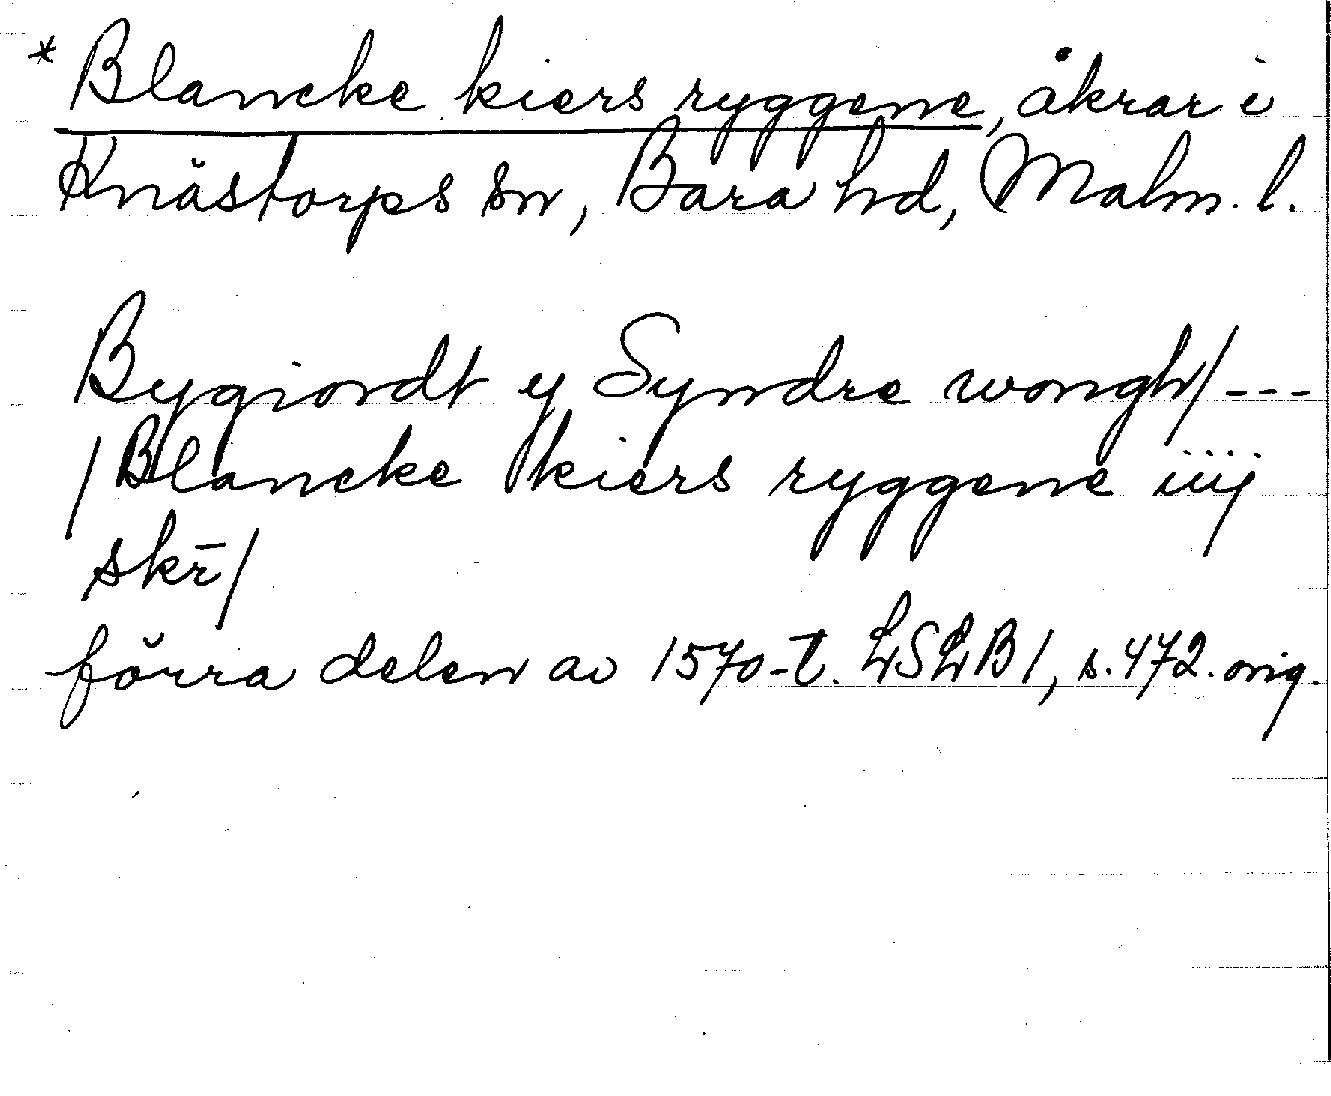 * Blancke kiers ryggene, åkrar i
Knästorps sn, Bara hd, Malm. l.
Bygiordt y Syndre wongh/ ---
/Blancke kiers ryggene iiij
skr̄/
förra delen av 1570-t. LSLB 1, s. 472. orig.